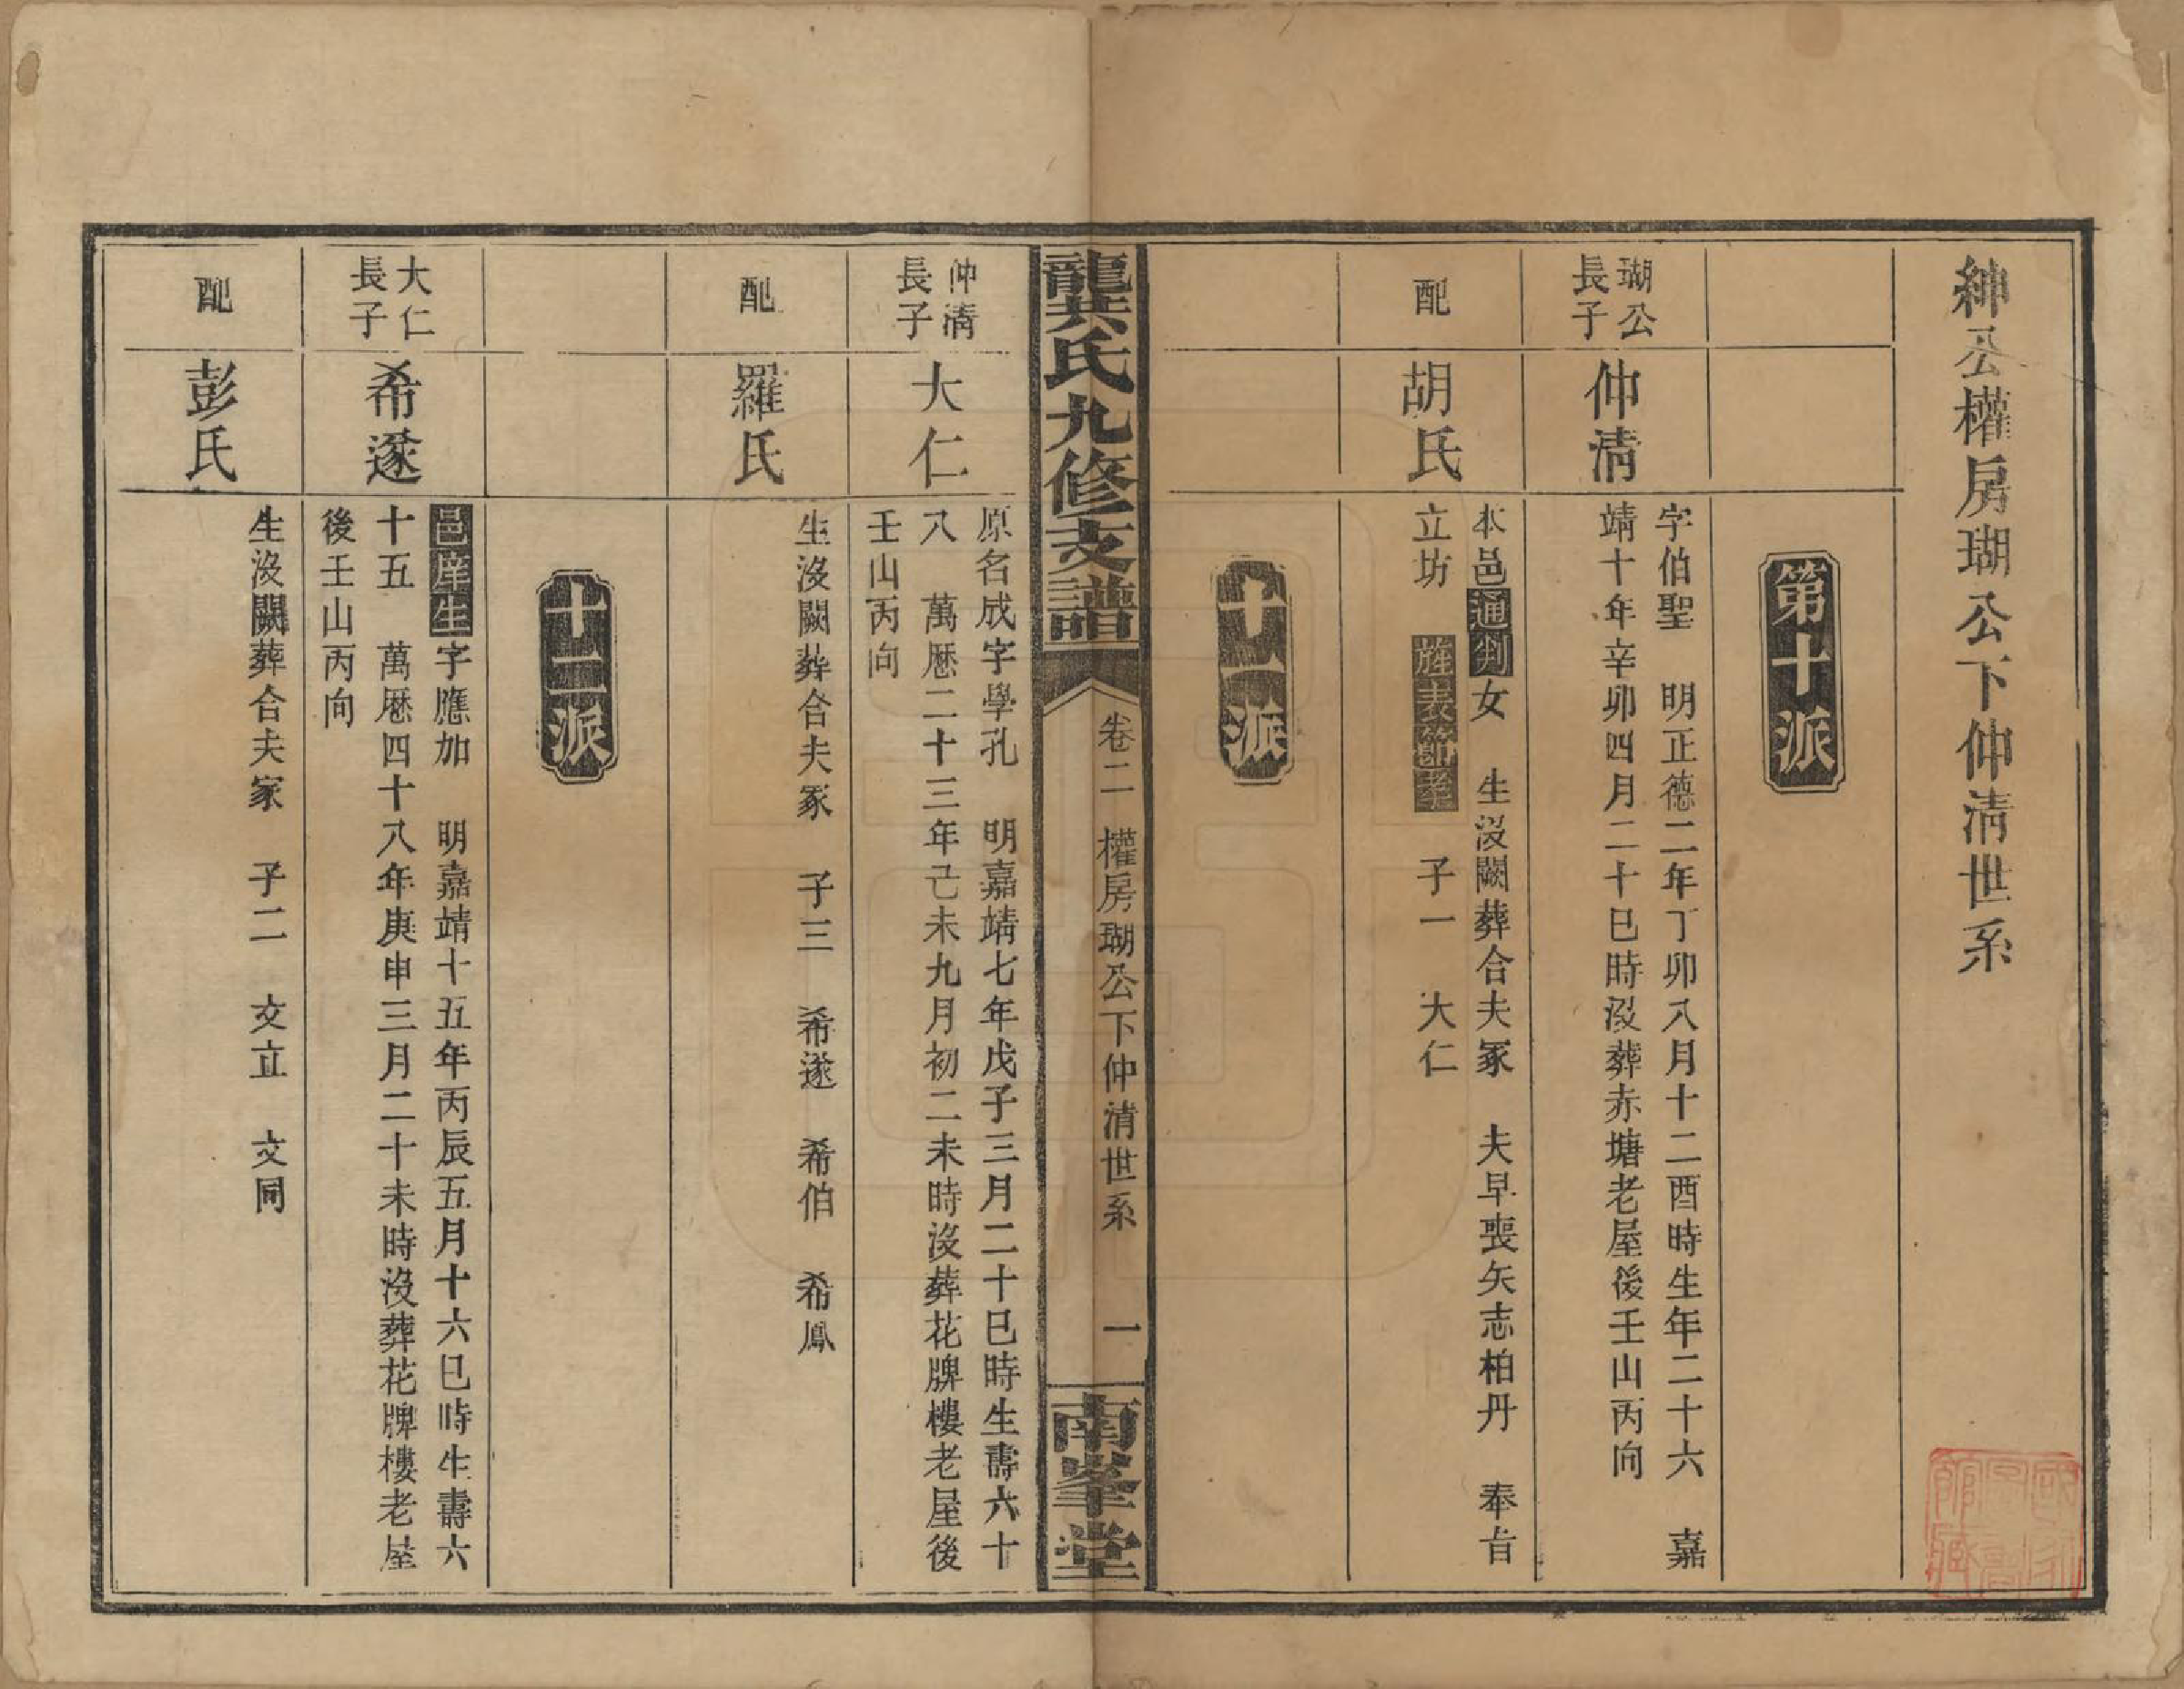 紳公權房瑚公下仲淸世系
第十派
瑚公
長子
仲淸
字伯聖　明正德二年丁卯八月十二酉時生年二十六　嘉
靖十年辛卯四月二十巳時沒葬赤塘老屋後壬山丙向
配
胡氏
本邑通判女　生沒闕葬合夫冢　夫早喪矢志柏丹　奉旨
立坊　旌表節孝　子一　大仁
十一派
龍井氏九修支譜
卷二　權房瑚公下仲淸世系　一
南峯堂
仲淸
長子
大仁
原名成字學孔　明嘉靖七年戊子三月二十巳時生壽六十
八　萬厯二十三年乙未九月初二未時沒葬花牌樓老屋後
壬山丙向
配
羅氏
生沒闕葬合夫冢　子三　希遂　希伯　希鳳
十二派
大仁
長子
希遂
邑庠生字應加　明嘉靖十五年丙辰五月十六巳時生壽六
十五　萬厯四十八年庚申三月二十未時沒葬花牌樓老屋
後壬山丙向
配
彭氏
生沒闕葬合夫冢　子二　文立　文同